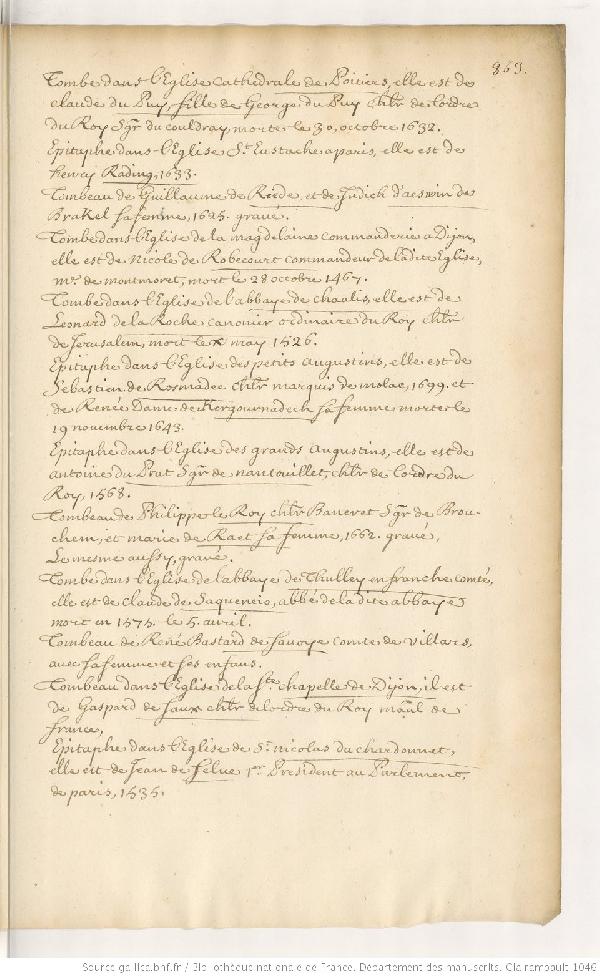 363.
Tombe dans l'Eglise cathedrale de Poitiers, elle est de
claude du Puy, fille de George du Puy chlr de l'ordre
du Roy Sgr du couldray, morte le 30, octobre 1632.
Epitaphe dans l'Eglise St Eustache a paris, elle est de
henry Rading, 1633.
Tombeau de Guillaume de Riede, et de Judich d'aeswin de
Brakel sa femme, 1625. gravé.
Tombe dans l'Eglise de la magdelaine commanderie a Dijon,
elle est de Nicole de Robecourt commandeur de ladite Eglise,
mre de montmoret, mort le 28 octobre 1467.
Tombe dans l'Eglise de l'abbaye de chaalis, elle est de
Leonard de la Roche canonier ordinaire du Roy chlr
de Jerusalem, mort le x may 1526.
Epitaphe dans l'Eglise des petits augustins, elle est de
Sebastien de Rosmadec chlr marquis de molac, 1699, et
de Renée Dame de Kergournadech sa femme morte le
19 novembre 1643.
Epitaphe dans l'Eglise des grands augustins, elle est de
antoine du Prat Sgr de nantouillet, chlr de l'ordre du
Roy, 1568.
Tombeau de Philippe le Roy chlr Baneret Sgr de Brou-
chem, et marie de Raet sa femme, 1662. gravé,
Le mesme aussy, gravé.
Tombe dans l'Eglise de l'abbaye de Thulley en franche comté,
elle est de claude de Saqueneio, abbé de la dite abbaye
mort en 1575. le 5. avril.
Tombeau de René Bastard de savoye comte de villars,
avec sa femme et ses enfans.
Tombeau dans l'Eglise de la Ste chapelle de Dijon, il est
de Gaspard de saux chlr de l'ordre du Roy maal de
france,
Epitaphe dans l'Eglise de St nicolas du chardonnet,
elle est de Jean de selue 1er President au Parlement,
de paris, 1535.
Source gallica.bnf.fr / Bibliothèque nationale de France. Département des manuscrits. Clairambault 1046